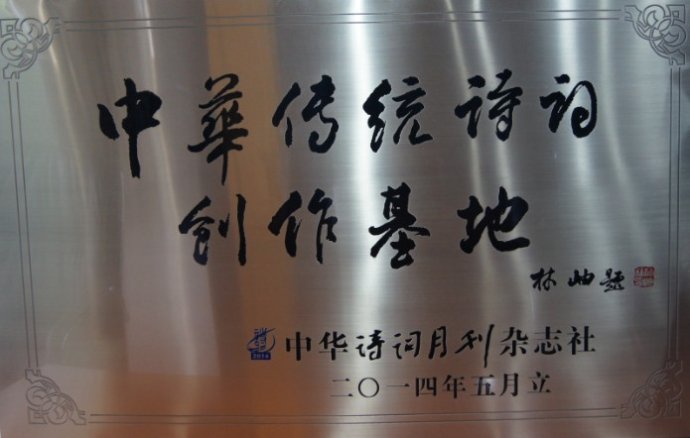 中華传统诗词
创作基地
林岫题
中华诗词月刊杂志社
二〇一四年五月立